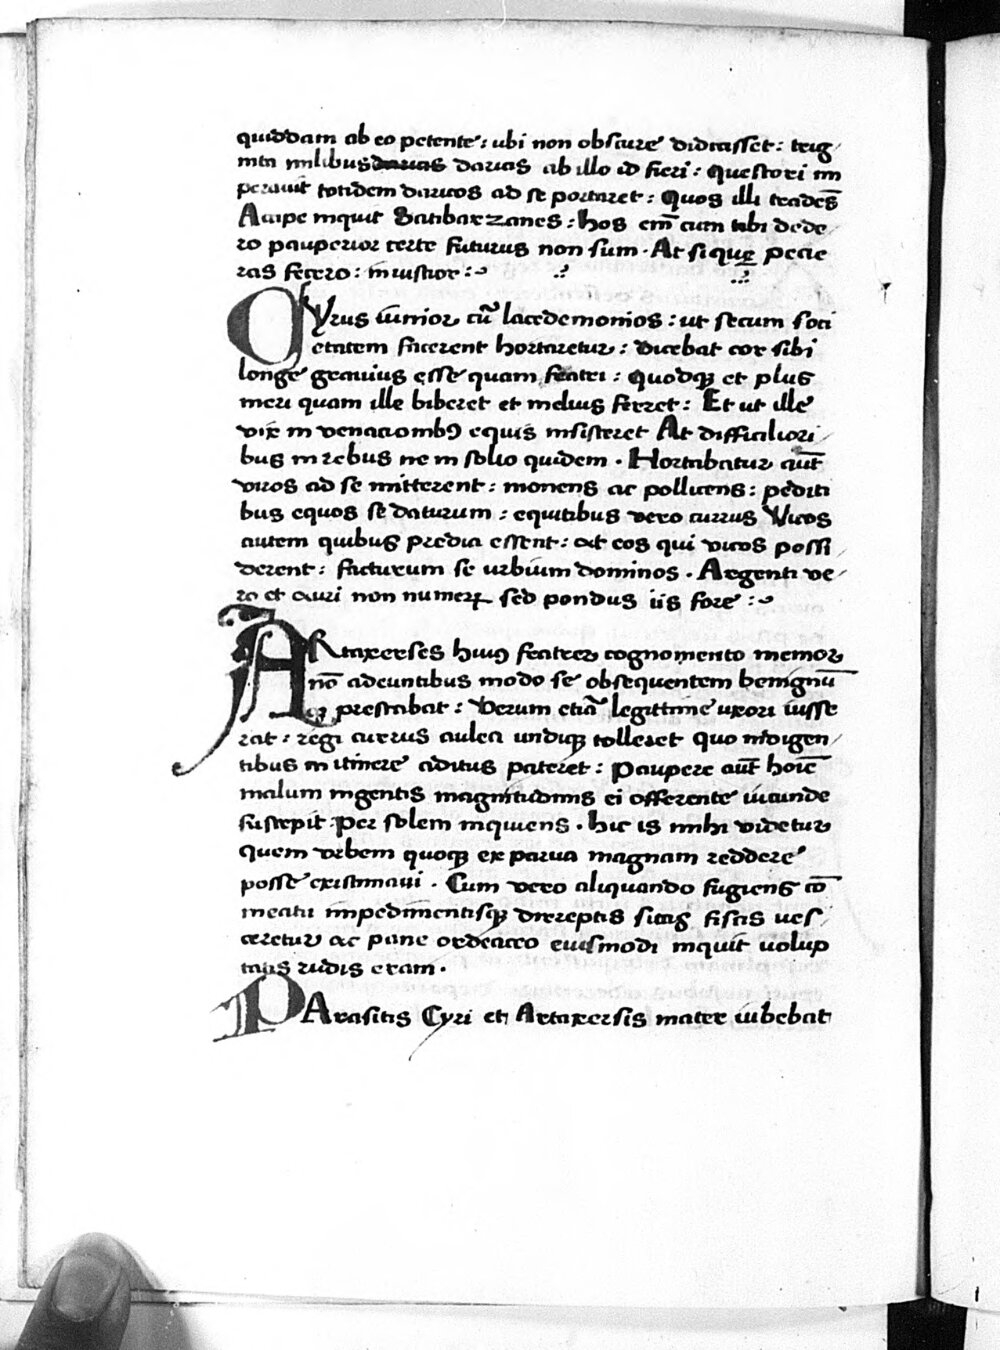 quiddam ab eo petente: ubi non obscure didicisset: trig
inta milibus daricis ab illo id fieri: Questori im
peravit totidem daricos ad se portaret: Quos illi tradēs
Accipe inquit Satibarzanes: hos em̄ cum tibi dede
ro pauperior certe futurus non sum. At si que petie
ras fecero: iniustior:
Cyrus iunior cū lacedemonios: ut secum soci
etatem facerent hortaretur: dicebat cor sibi
longe gravius esse quam fratri: quodqꝫ et plus
meri quam ille biberet et melius ferret: Et ut ille
vix in venacionibꝰ equis insisteret At difficiliori
bus in rebus ne in solio quidem. Hortabatur aut̄
viros ad se mitterent: monens ac pollicens: pediti
bus equos se daturum: equitibus vero currus Vicos
autem quibus predia essent: at eos qui vicos possi
derent: facturum se urbium dominos. Argenti ve
ro et auri non numerꝝ sed pondus iis fore:
ARtaxerses huiꝰ frater cognomento memor
nō adeuntibus modo se obsequentem benignū
qꝫ prestabat: Verum etiā legittime uxori iusse
rat: regi currus aulea undiqꝫ tolleret quo indigen
tibus in itinere aditus pateret: Paupere aut̄ hoīe
malum ingentis magnitudinis ei offerente iucunde
suscepit. Per solem inquiens. hic is mihi videtur
quem urbem quoqꝫ ex parva magnam reddere
posse existimavi. Cum vero aliquando fugiens cō
meatu impedimentisqꝫ direptis siccis ficis ves
ceretur ac pane ordeacco euismodi inquit volup
tatis rudis eram.
PArasitis Cyri et Artaxersis mater iubebat